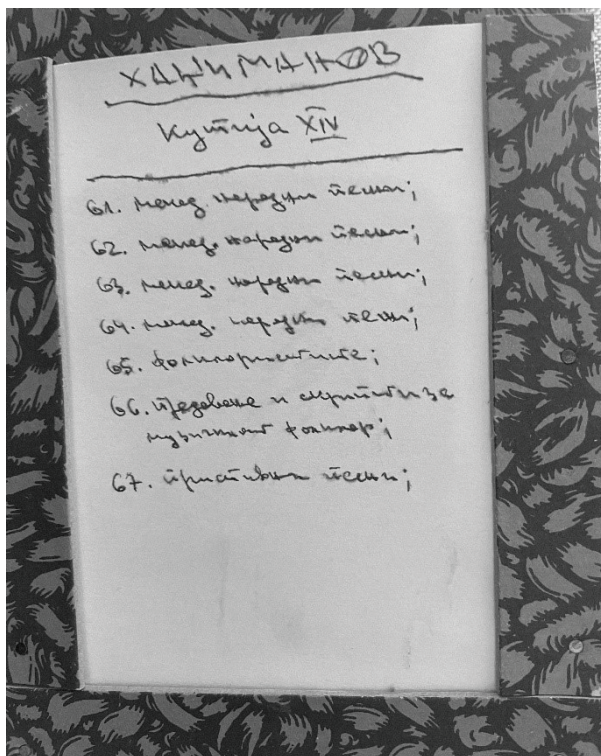 ХАЏИМАНОВ
Кутија XIV
61. макед. народни песни;
62. макед. народни песни;
63. макед. народни песни;
64. макед. народни песни;
65. фолклористите;
66. предавање и скрипти за
музичкиот фолклор;
67. песни;